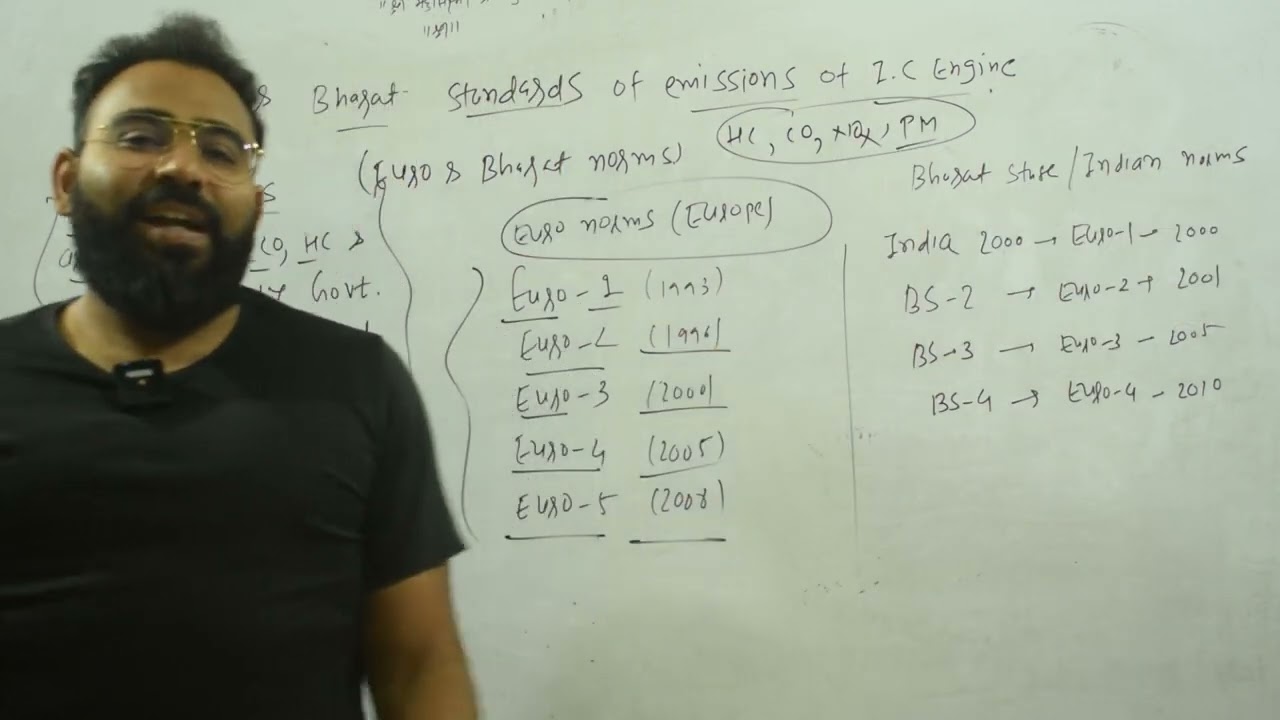 Bharat standards of emissions of I.C Engine
(Euro & Bharat norms)
HC, CO, NOx, PM
CO, HC &
Govt.
Euro norms (Europe)
Euro-1 (1993)
Euro-2 (1996)
Euro-3 (2000)
Euro-4 (2005)
Euro-5 (2008)
Bharat stage/Indian norms
India 2000 → Euro-1 - 2000
BS-2 → Euro-2 → 2001
BS-3 → Euro-3 - 2005
BS-4 → Euro-4 - 2010